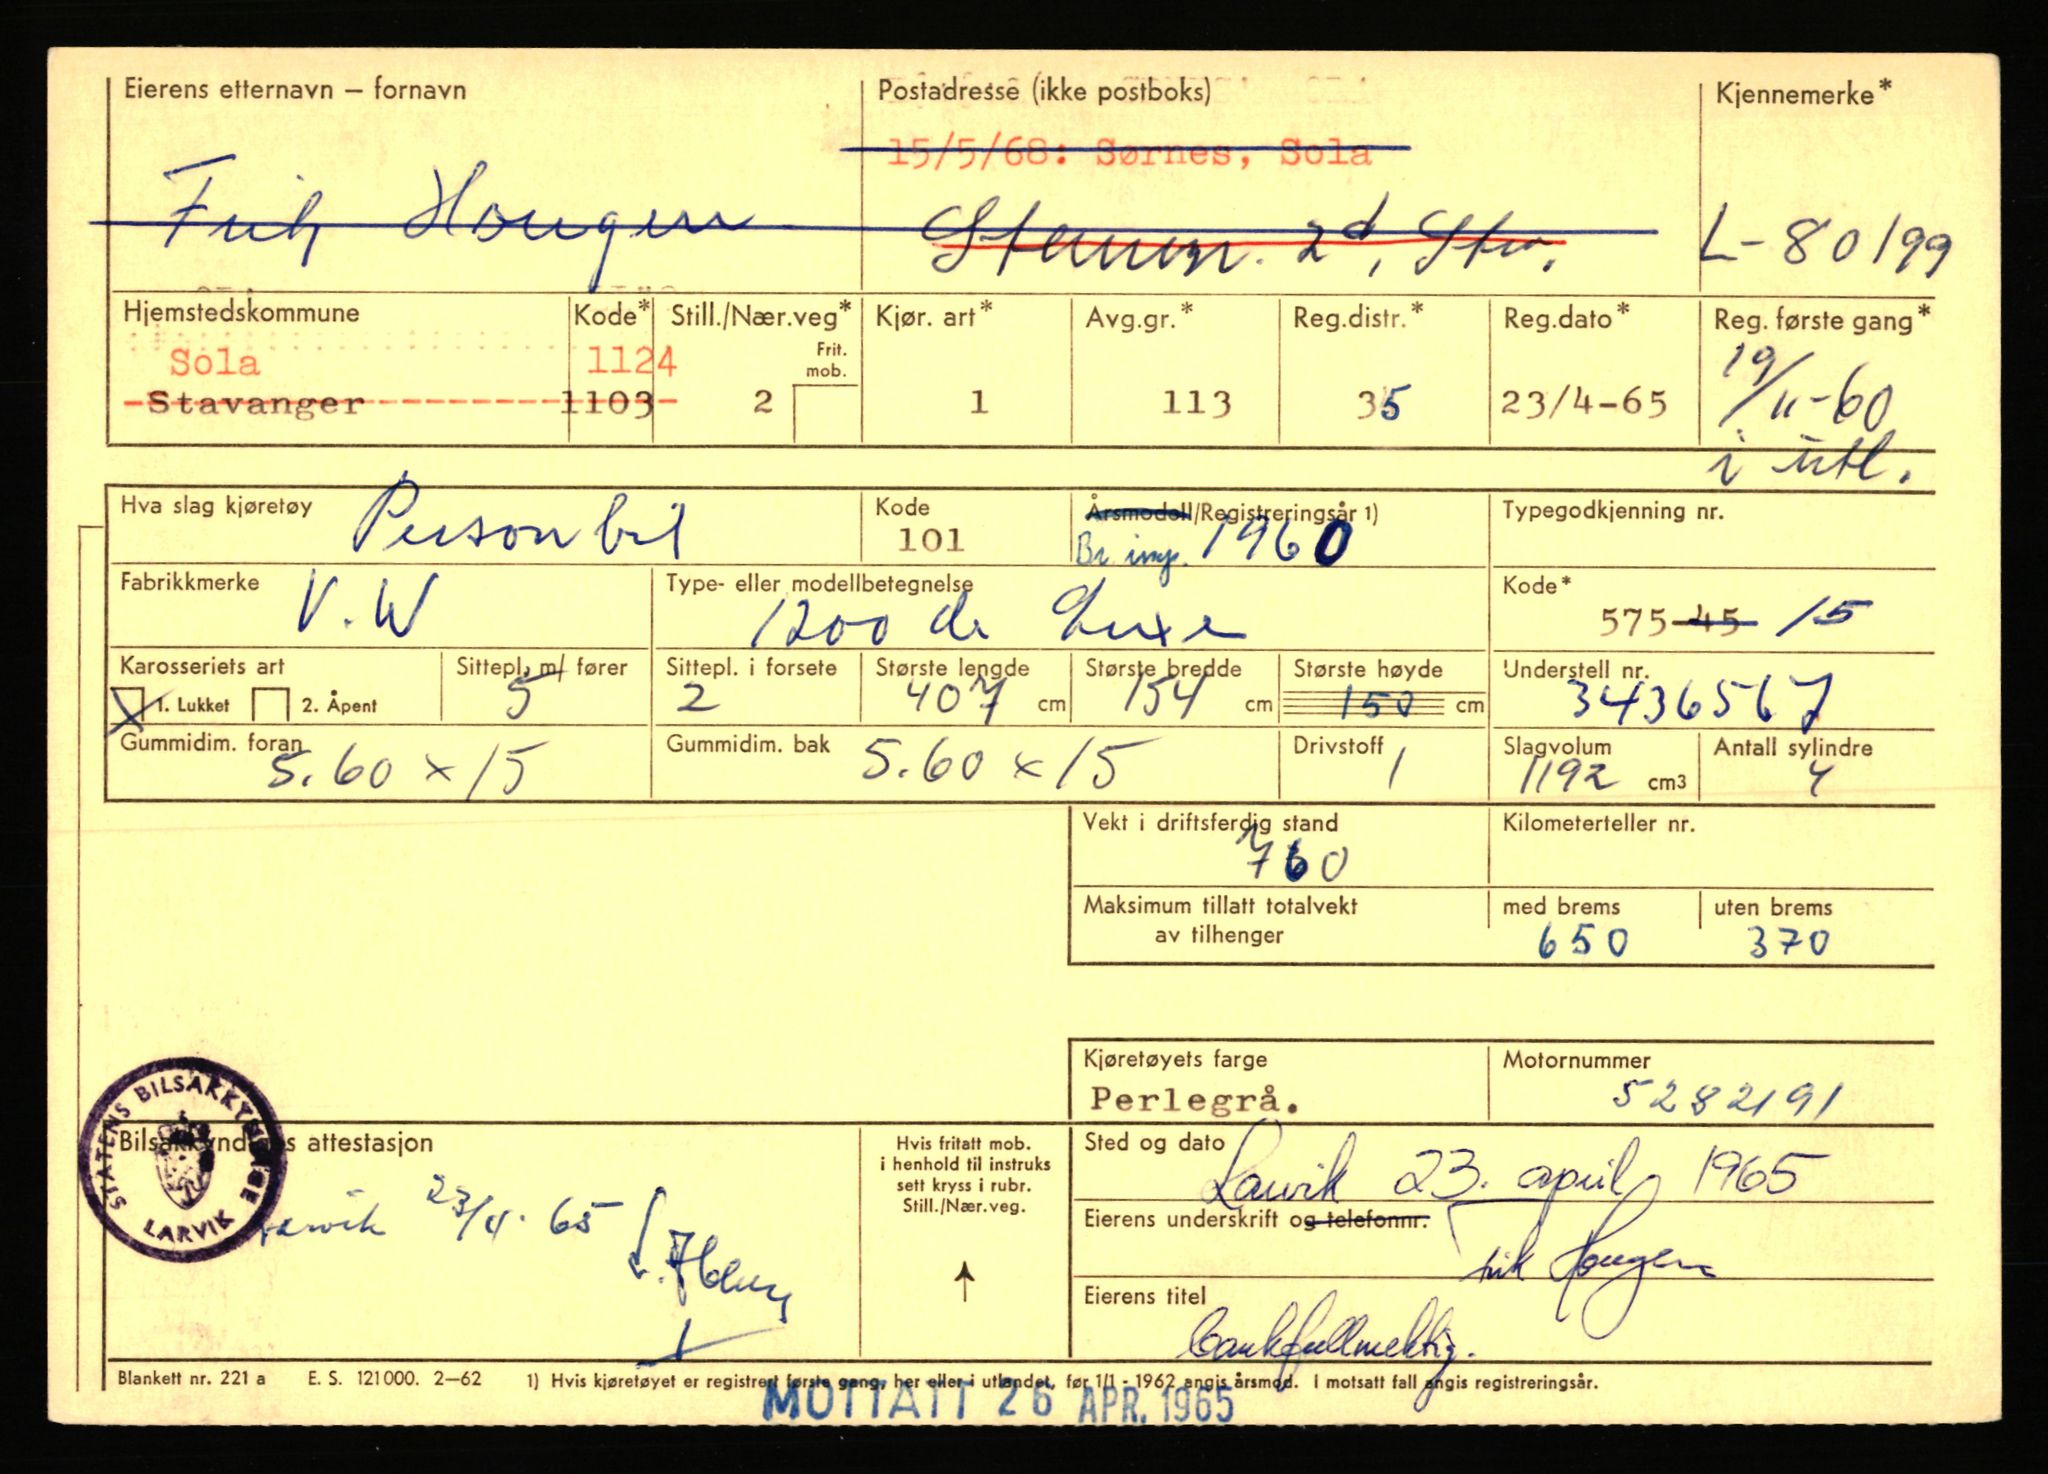 Eierens etternavn – fornavn
Postadresse (ikke postboks)
Kjennemerke*
15/5/68: Sørnes, Sola
Hougen
2d, Stv.
L-80199
Hjemstedskommune
Kode*
Still./Nær.veg*
Kjør. art*
Avg.gr.*
Reg.distr.*
Reg.dato*
Reg. første gang*
Frit.
mob.
Sola
1124
Stavanger
1103
2
1
113
35
23/4-65
19/11-60
i utl.
Hva slag kjøretøy
Personbil
Kode
101
Årsmodell/Registreringsår 1)
Br. imp. 1960
Typegodkjenning nr.
Fabrikkmerke
V.W
Type- eller modellbetegnelse
1200 de Luxe
Kode*
575-45 15
Karosseriets art
1. Lukket
2. Åpent
Sittepl. m/ fører
5
Sittepl. i forsete
2
Største lengde
407 cm
Største bredde
154 cm
Største høyde
150 cm
Understell nr.
3436567
Gummidim. foran
5.60 x 15
Gummidim. bak
5.60 x 15
Drivstoff
1
Slagvolum
1192 cm3
Antall sylindre
4
Vekt i driftsferdig stand
760
Kilometerteller nr.
Maksimum tillatt totalvekt
av tilhenger
med brems
650
uten brems
370
Kjøretøyets farge
Perlegrå.
Motornummer
5282191
STATENS BILSAKKYNDIGE
LARVIK
Bilsakkyndiges attestasjon
Larvik 23/4. 65
Hvis fritatt mob.
i henhold til instruks
sett kryss i rubr.
Still./Nær.veg.
↑
Sted og dato
Larvik 23. april 1965
Eierens underskrift og telefonnr.
Hougen
Eierens titel
bankfullmektig.
Blankett nr. 221 a E. S. 121000. 2–62 1) Hvis kjøretøyet er registrert første gang, her eller i utlandet, før 1/1 - 1962 angis årsmod. I motsatt fall angis registreringsår.
MOTTATT 26 APR. 1965